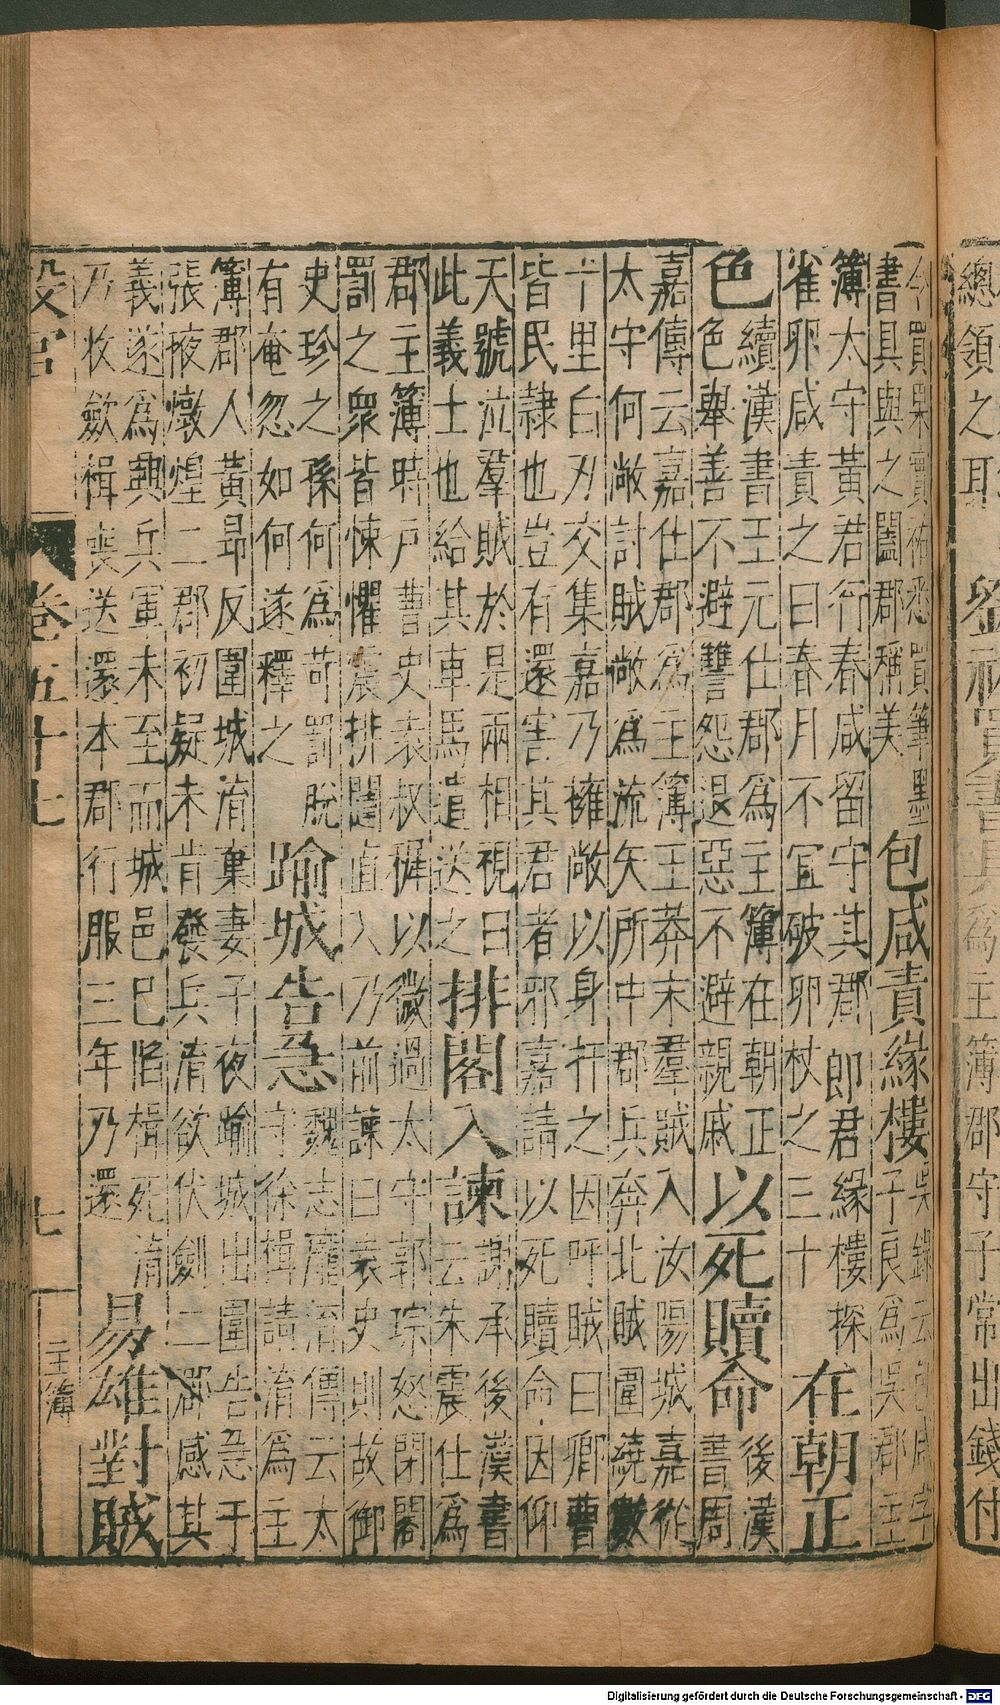 總領之耳 劉祐買書具 爲主簿郡守子常出錢付
令買果實祐悉買筆墨
書具與之闔郡稱美
包咸責緣樓
吳錄云包咸字
子良爲吳郡主
簿太守黃君行春咸留守其郡郎君緣樓探
雀卵咸責之曰春月不宜破卵杖之三十
在朝正
色
續漢書王元仕郡爲主簿在朝正
色舉善不避讐怨退惡不避親戚
以死贖命
後漢
書周
嘉傳云嘉仕郡爲主簿王莽末羣賊入汝陽城嘉從
太守何敞討賊敞爲流矢所中郡兵奔北賊圍繞數
十里白刃交集嘉乃擁敞以身扞之因呼賊曰卿曹
皆民隸也豈有還害其君者邪嘉請以死贖命因仰
天號泣羣賊於是兩相視曰
此義士也給其車馬遣送之
排閣入諫
謝承後漢書
云朱震仕爲
郡主簿時戶曹史袁叔稺以微過太守郭琮怒閉閣
罰之衆皆悚懼震排闥直入乃前諫曰袁史則故御
史珍之孫何爲苛罰脫
有奄忽如何遂釋之
踰城告急
魏志龐淯傳云太
守徐揖請淯爲主
簿郡人黃昂反圍城淯棄妻子夜踰城出圍告急于
張掖燉煌二郡初疑未肯發兵淯欲伏劍二郡感其
義遂爲興兵軍未至而城邑已陷揖死淯
乃收斂揖喪送還本郡行服三年乃還
易雄對賊
設官 卷五十七 七 主簿
Digitalisierung gefördert durch die Deutsche Forschungsgemeinschaft - DFG